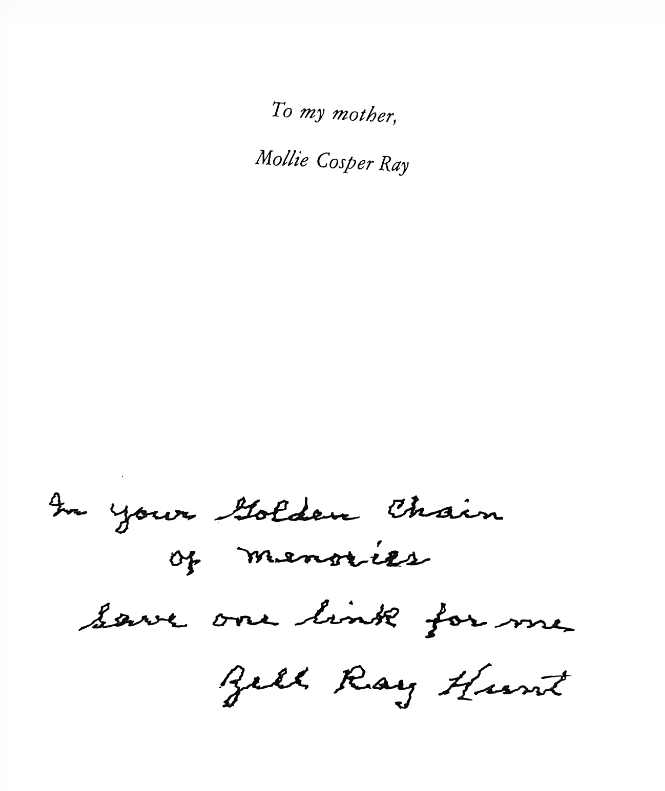 To my mother,
Mollie Cosper Ray
In your Golden Chain
of memories
Save one link for me
Zell Ray Hunt